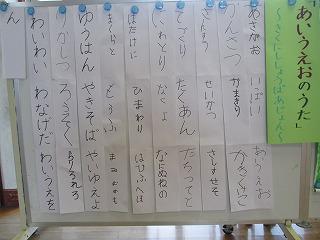 「あいうえおのうた」
～さくにししょうばあじょん～
あさがお いっぱい あいうえお
かんさつ かまきり かきくけこ
さんすう せいかつ さしすせそ
てづくり たくあん たちつてと
にわとり なくよ なにぬねの
はたけに ひまわり はひふへほ
とうふ まみむめも
ゆうはん やきそば やいゆえよ
りかしつ ろうそく らりるれろ
わいわい わなげだ わいうえを
ん